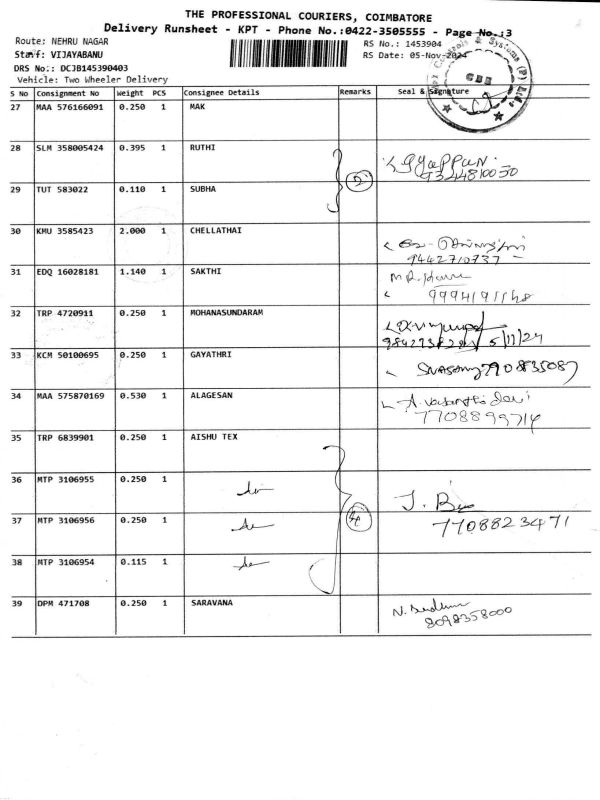 THE PROFESSIONAL COURIERS, COIMBATORE
Delivery Runsheet - KPT - Phone No.:0422-3505555 - Page No.:3
Route: NEHRU NAGAR RS No.: 1453904
Staff: VIJAYABANU RS Date: 05-Nov-2024
DRS No.: DCJB145390403
Vehicle: Two Wheeler Delivery
S No Consignment No Weight PCS Consignee Details Remarks Seal & Signature
27 MAA 576166091 0.250 1 MAK
28 SLM 358005424 0.395 1 RUTHI
29 TUT 583022 0.110 1 SUBHA
30 KMU 3585423 2.000 1 CHELLATHAI
9442710737
31 EDQ 16028181 1.140 1 SAKTHI
32 TRP 4720911 0.250 1 MOHANASUNDARAM
5/11/24
33 KCM 50100695 0.250 1 GAYATHRI
7908835087
34 MAA 575870169 0.530 1 ALAGESAN
35 TRP 6839901 0.250 1 AISHU TEX
36 MTP 3106955 0.250 1
37 MTP 3106956 0.250 1
7708823471
38 MTP 3106954 0.115 1
39 DPM 471708 0.250 1 SARAVANA
8098358000